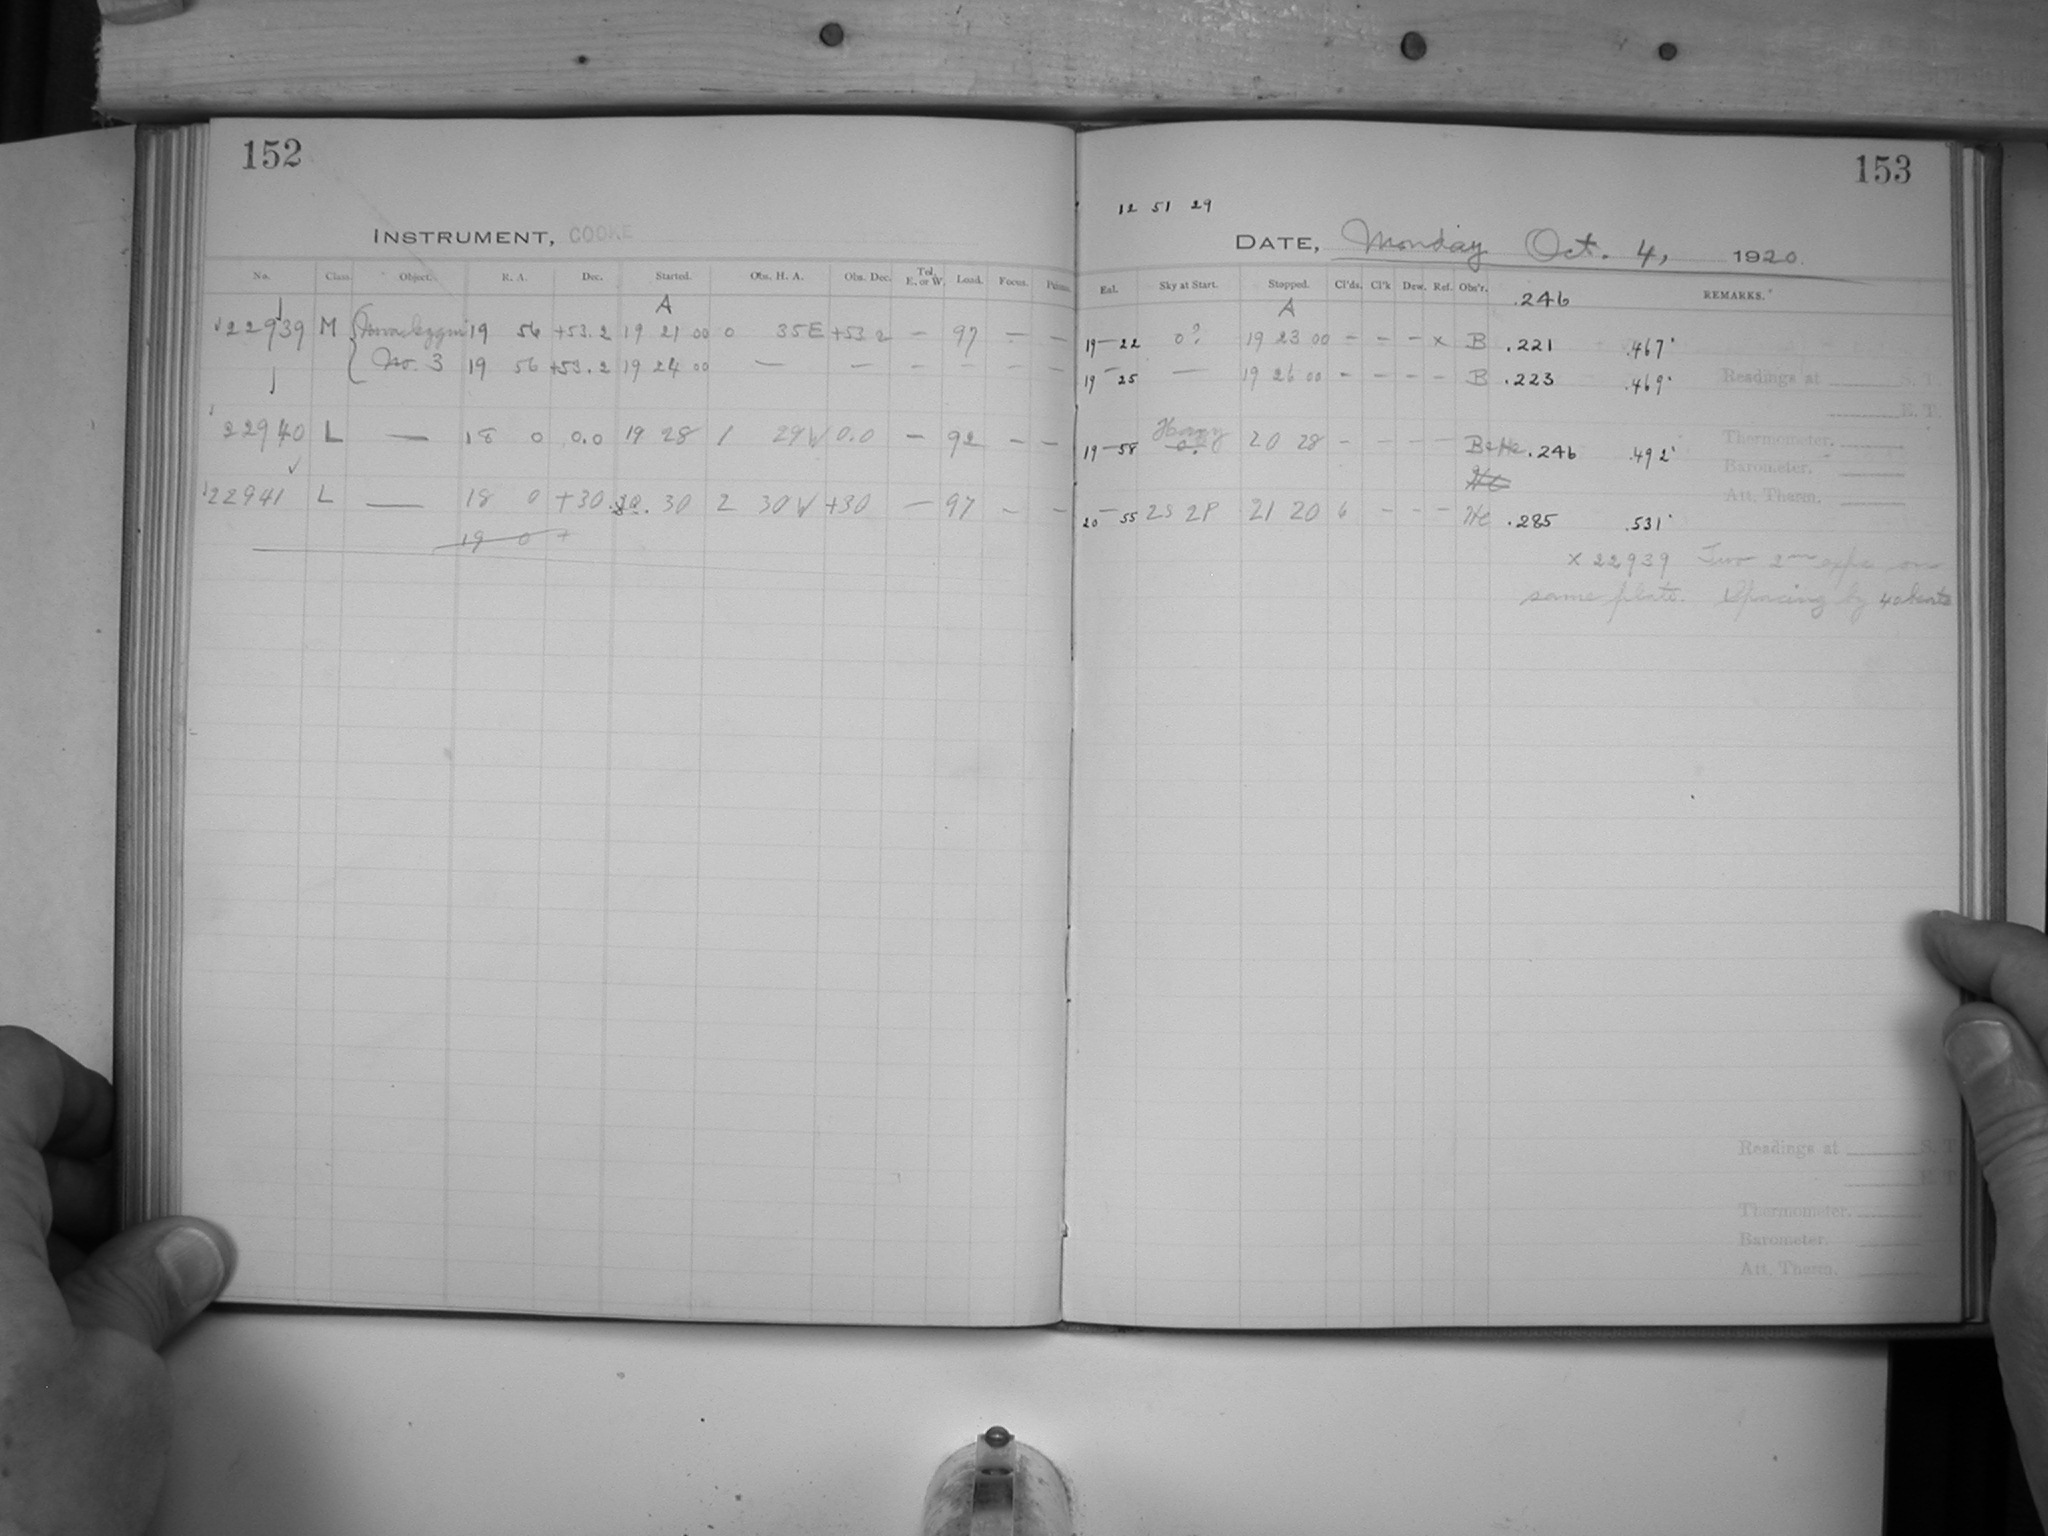 152
INSTRUMENT, COOKE
No. Class. Object. R. A. Dec. Started. Obs. H. A. Obs. Dec. Tel. E. or W. Load. Focus.
A
22939 M 19 56 +53.2 19 21 00 0 35E +53.2 — 97 — —
No. 3 19 56 +53.2 19 24 00 — — — — — —
22940 L — 18 0 0.0 19 28 1 29W 0.0 — 92 — —
22941 L — 18 0 +30 20. 30 2 30W +30 — 97 — —
19 0 +
153
12 51 29
DATE, Monday Oct. 4, 1920.
Sky at Start. Stopped. Cl'ds. Cl'k Dew. Ref. Obs'r. .246 REMARKS.
A
19—22 0? 19 23 00 - - - x B .221 .467
19—25 — 19 26 00 - - - - B .223 .469
Hazy
19—58 0. 20 28 - - - - B+He .246 .492
He
20—55 2S 2P 21 20 6 - - - He .285 .531
x 22939 Two 2m exps on
same plate. Spacing by 40 beats
Readings at S. T.
E. T.
Thermometer.
Barometer.
Att. Therm.
Readings at S. T.
E. T.
Thermometer.
Barometer.
Att. Therm.